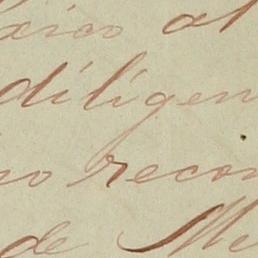 xico al
diligen
no recon
de Me